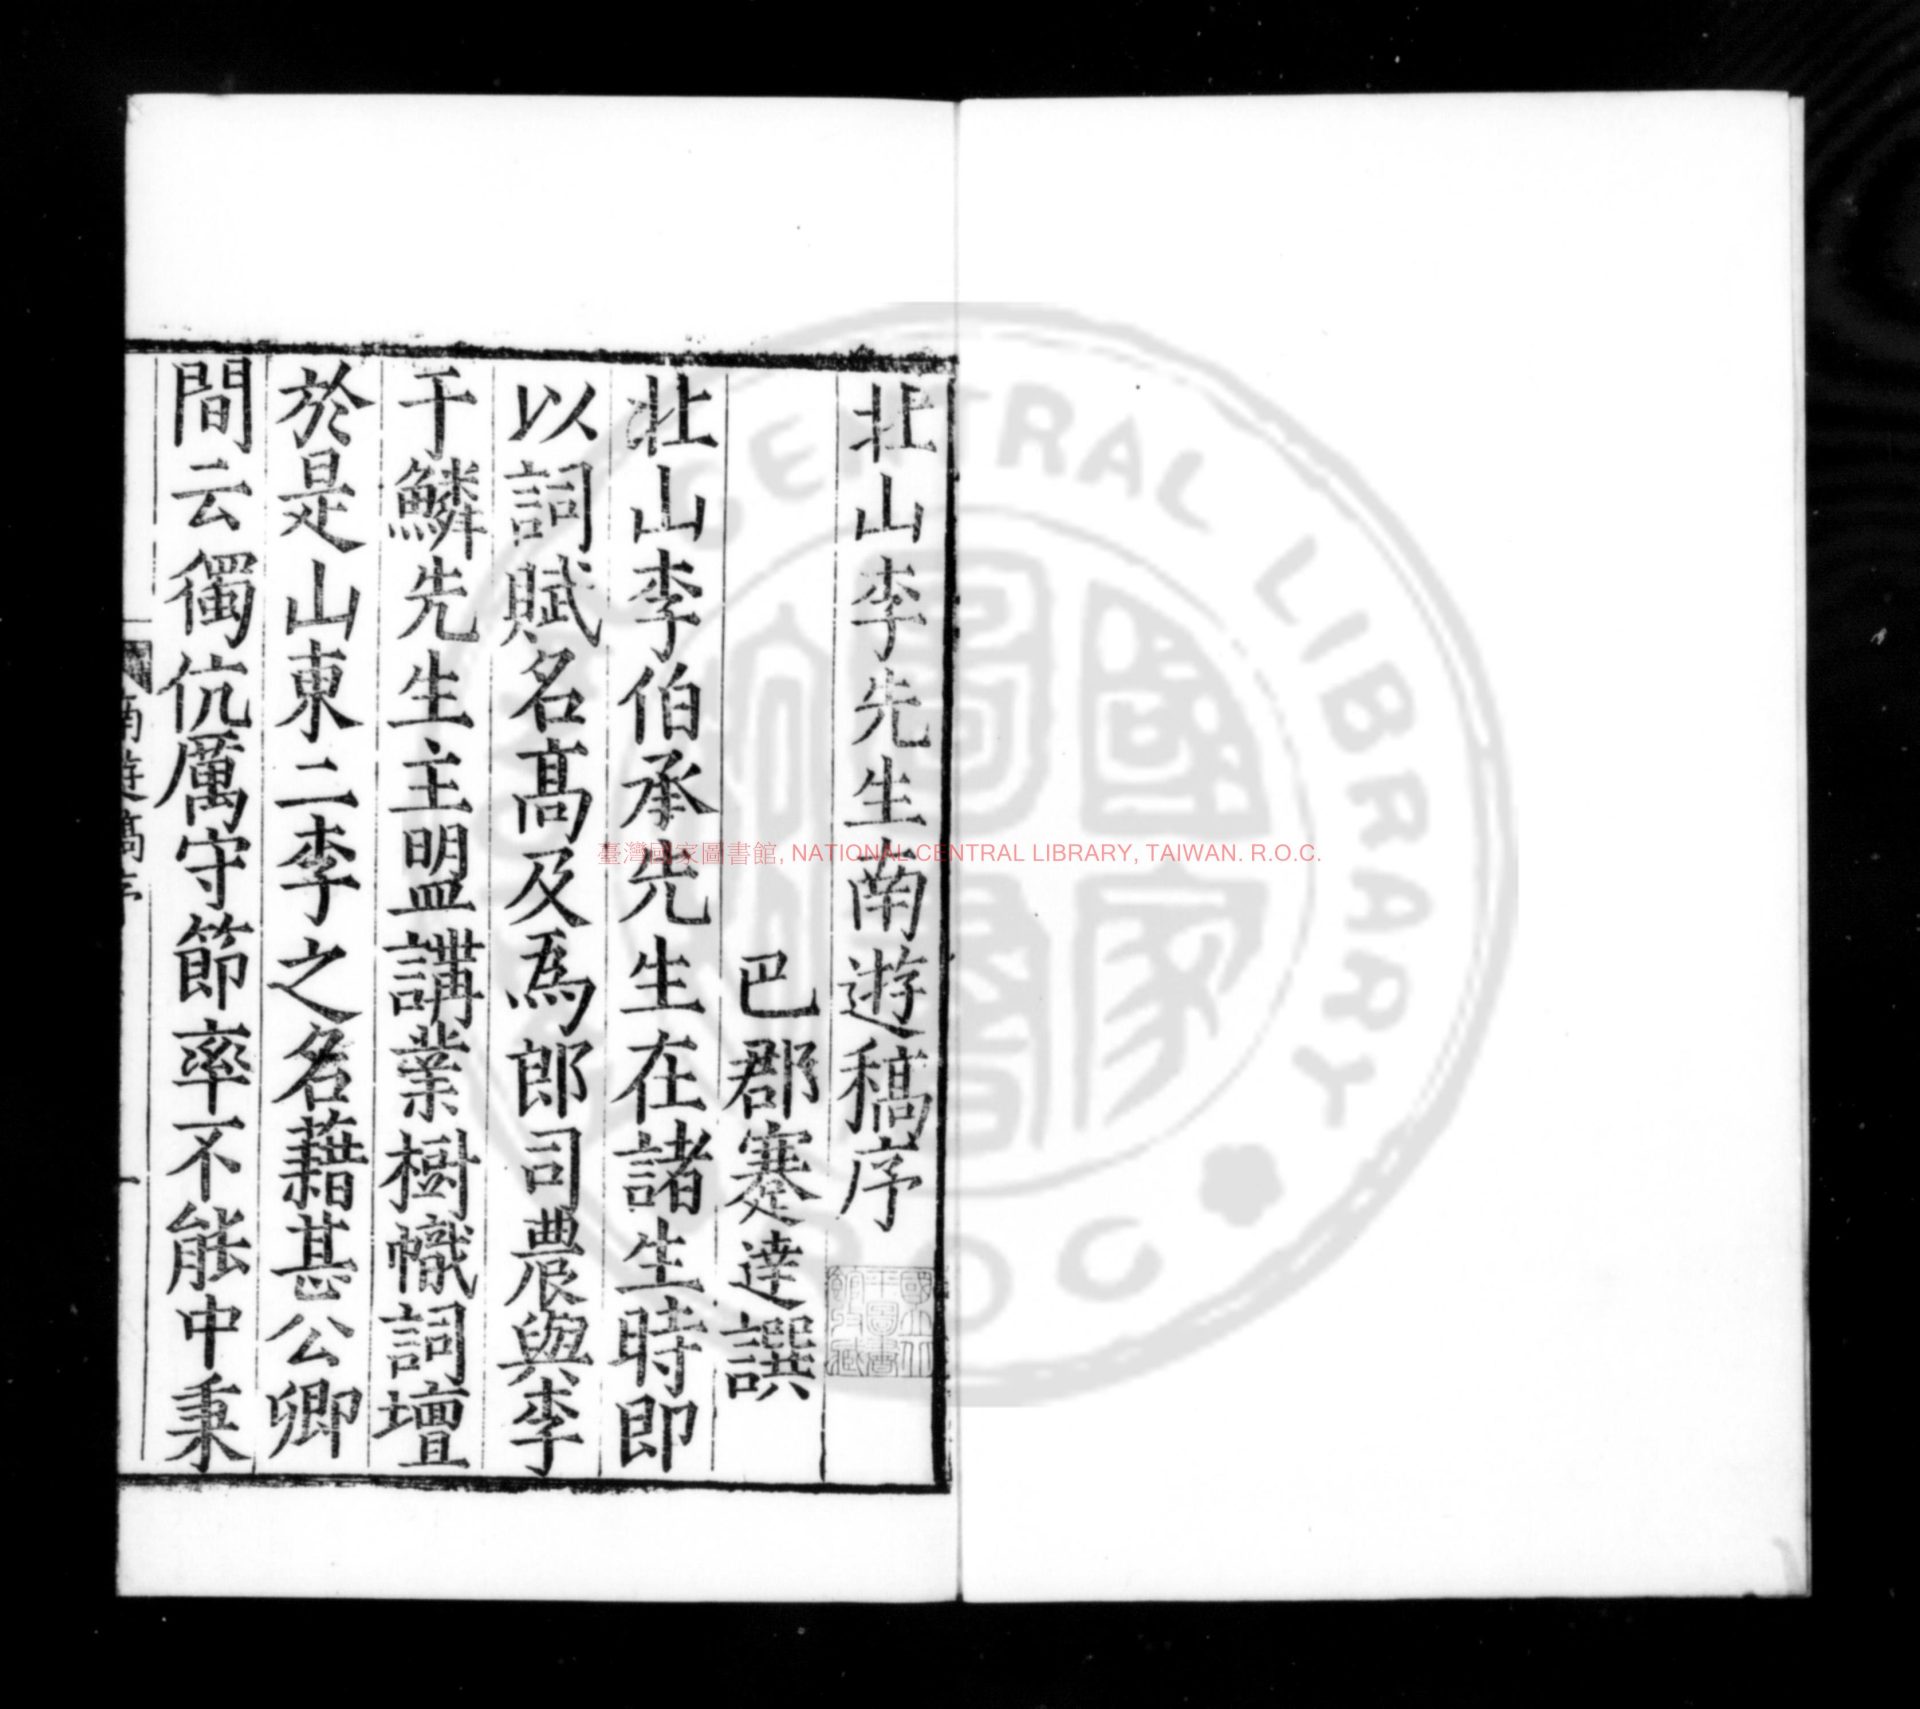 北山李先生南遊稿序
巴郡蹇達譔
北山李伯承先生在諸生時即
以詞賦名髙及為郎司農與李
于鱗先生主盟講業樹幟詞壇
於是山東二李之名藉甚公卿
間云獨伉厲守節率不能中秉
南遊稿序
一
國立北平圖書館收藏
臺灣國家圖書館, NATIONAL CENTRAL LIBRARY, TAIWAN. R.O.C.